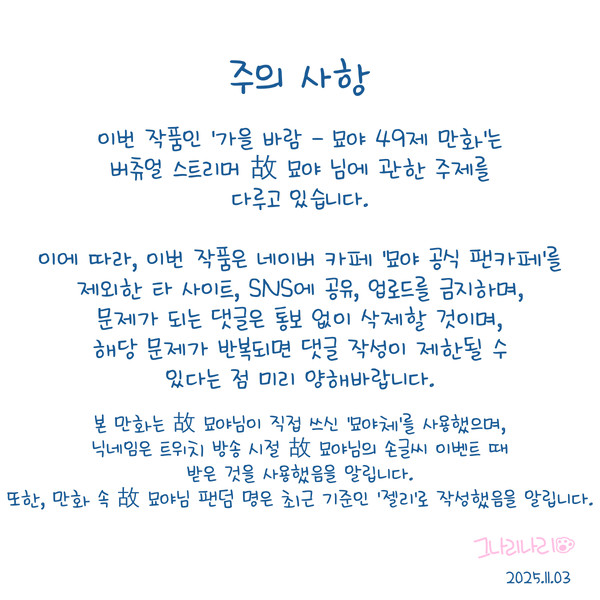 주의 사항
이번 작품인 '가을 바람 - 묘야 49제 만화'는
버츄얼 스트리머 故 묘야 님에 관한 주제를
다루고 있습니다.
이에 따라, 이번 작품은 네이버 카페 '묘야 공식 팬카페'를
제외한 타 사이트, SNS에 공유, 업로드를 금지하며,
문제가 되는 댓글은 통보 없이 삭제할 것이며,
해당 문제가 반복되면 댓글 작성이 제한될 수
있다는 점 미리 양해바랍니다.
본 만화는 故 묘야님이 직접 쓰신 '묘야체'를 사용했으며,
닉네임은 트위치 방송 시절 故 묘야님의 손글씨 이벤트 때
받은 것을 사용했음을 알립니다.
또한, 만화 속 故 묘야님 팬덤 명은 최근 기준인 '젤리'로 작성했음을 알립니다.
그나리나리
2025.11.03